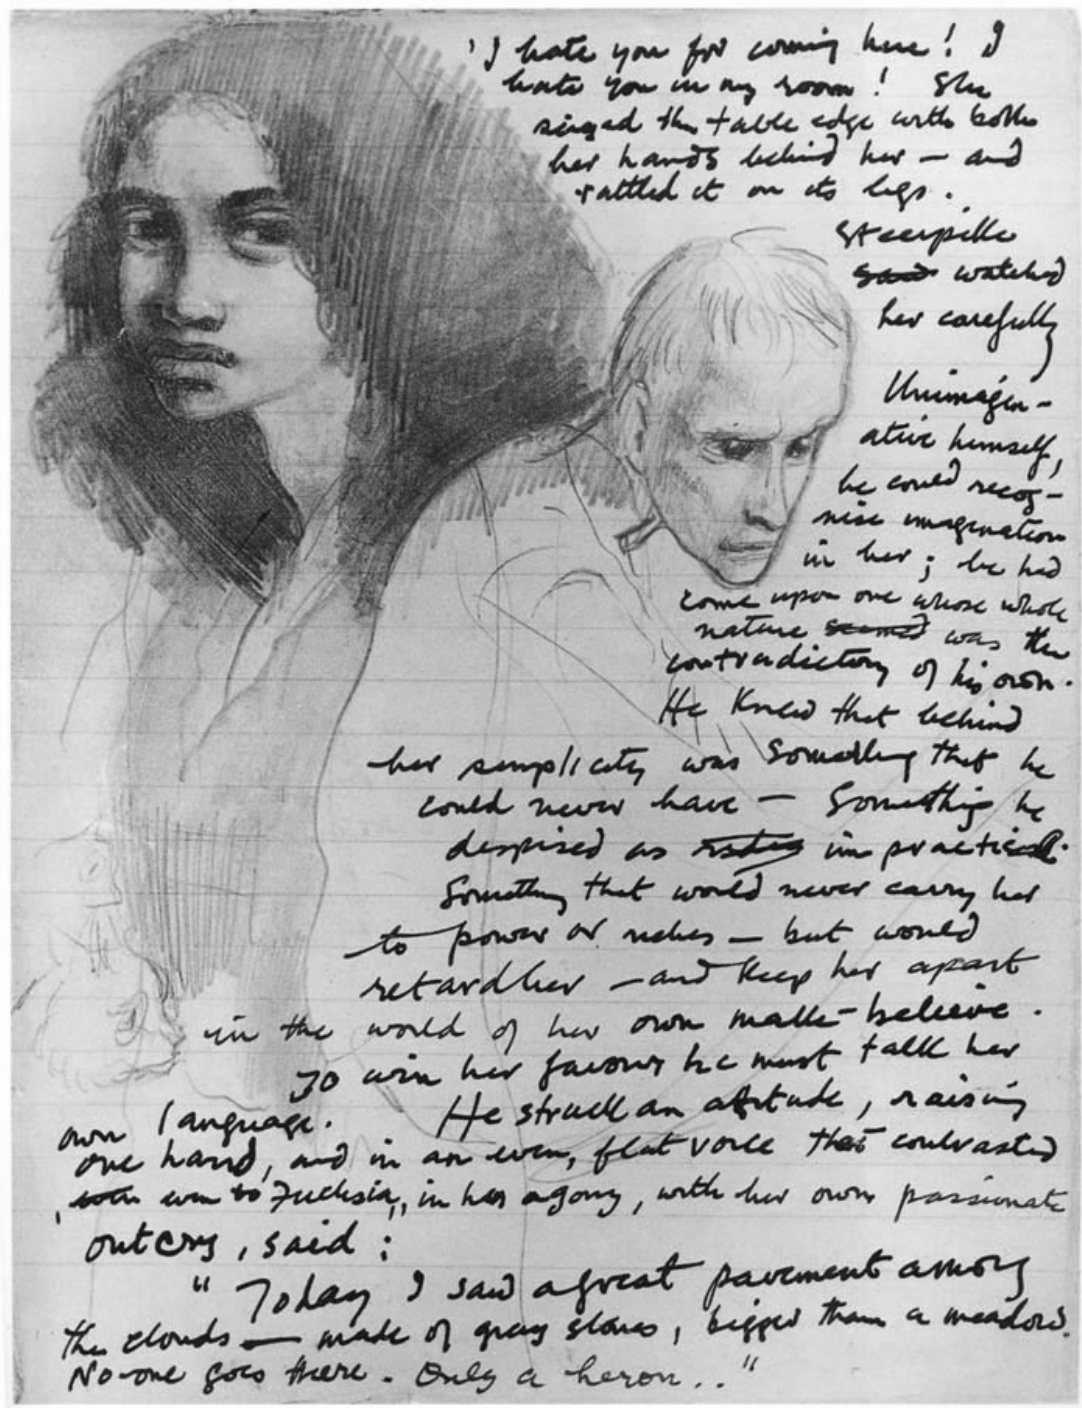 'I hate you for coming here! I
hate you in my room! She
siezed the table edge with both
her hands behind her — and
rattled it on its legs.
Steerpike
said watched
her carefully
Unimagin-
ative himself,
he could recog-
nise imagination
in her; he had
come upon one whose whole
nature seemed was the
contradictory of his own.
He Knew that behind
her simplicity was Something that he
could never have — Something he
despised as impractical.
Something that would never carry her
to power or riches — but would
retard her — and Keep her apart
in the world of her own make-believe.
To win her favour he must talk her
own language. He struck an attitude, raising
one hand, and in an even, flat voice that contrasted
, even to Fuchsia, in her agony, with her own passionate
outcry, said:
"Today I saw a great pavement among
the clouds — made of grey stones, bigger than a meadow.
No-one goes there. Only a heron.."